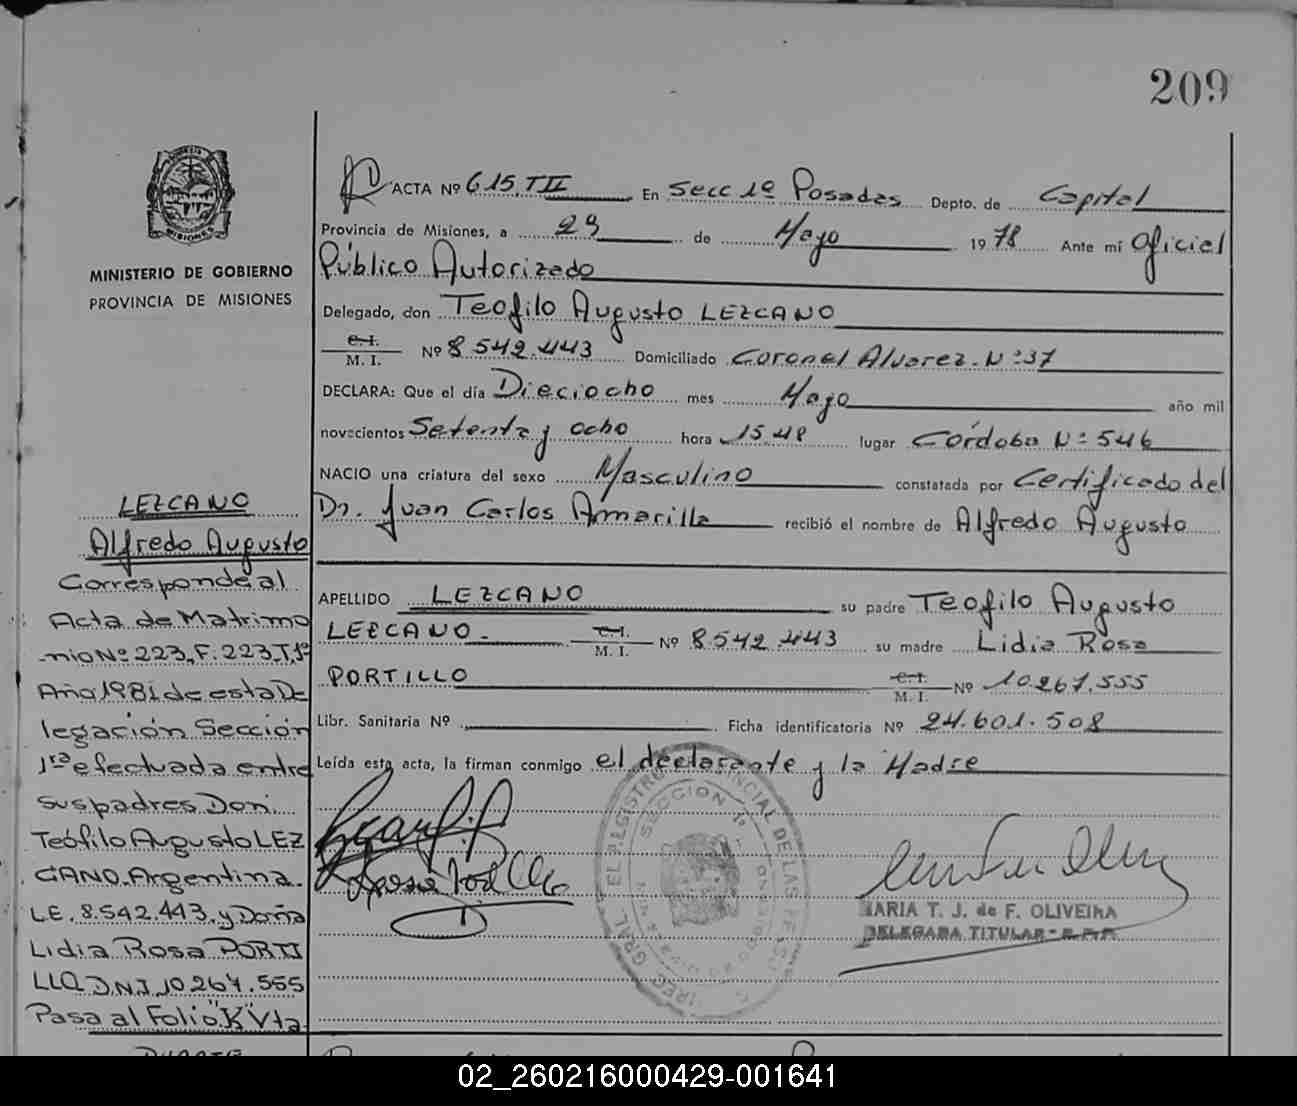 209
MINISTERIO DE GOBIERNO
PROVINCIA DE MISIONES
ACTA Nº 615.TII En Secc 1º Posadas Depto. de Capital
Provincia de Misiones, a 29 de Mayo 1978 Ante mí Oficial
Público Autorizado
Delegado, don Teofilo Augusto LEZCANO
C. I.
M. I. Nº 8.542.443 Domiciliado Coronel Alvarez. Nº 37
DECLARA: Que el día Dieciocho mes Mayo año mil
novecientos Setenta y ocho hora 15.48 lugar Córdoba Nº 546
NACIO una criatura del sexo Masculino constatada por Certificado del
Dr. Juan Carlos Amarilla recibió el nombre de Alfredo Augusto
APELLIDO LEZCANO su padre Teofilo Augusto
LEZCANO. C. I. M. I. Nº 8.542.443 su madre Lidia Rosa
PORTILLO C. I. M. I. Nº 10.267.555
Libr. Sanitaria Nº Ficha identificatoria Nº 24.601.508
Leída esta acta, la firman conmigo el declarante y la Madre
MARIA T. J. de F. OLIVEIRA
DELEGADA TITULAR - R.P.P.
LEZCANO
Alfredo Augusto
Corresponde al
Acta de Matrimo
nio Nº 223, F. 223, T, 1º
Año 1981 de esta De
legación Sección
1ra efectuada entre
sus padres Don.
Teófilo Augusto LEZ
CANO, Argentina.
L.E. 8.542.443. y Doña
Lidia Rosa PORTI
LLO D.N.I. 10.267.555
Pasa al Folio "K" Vta
02_260216000429-001641